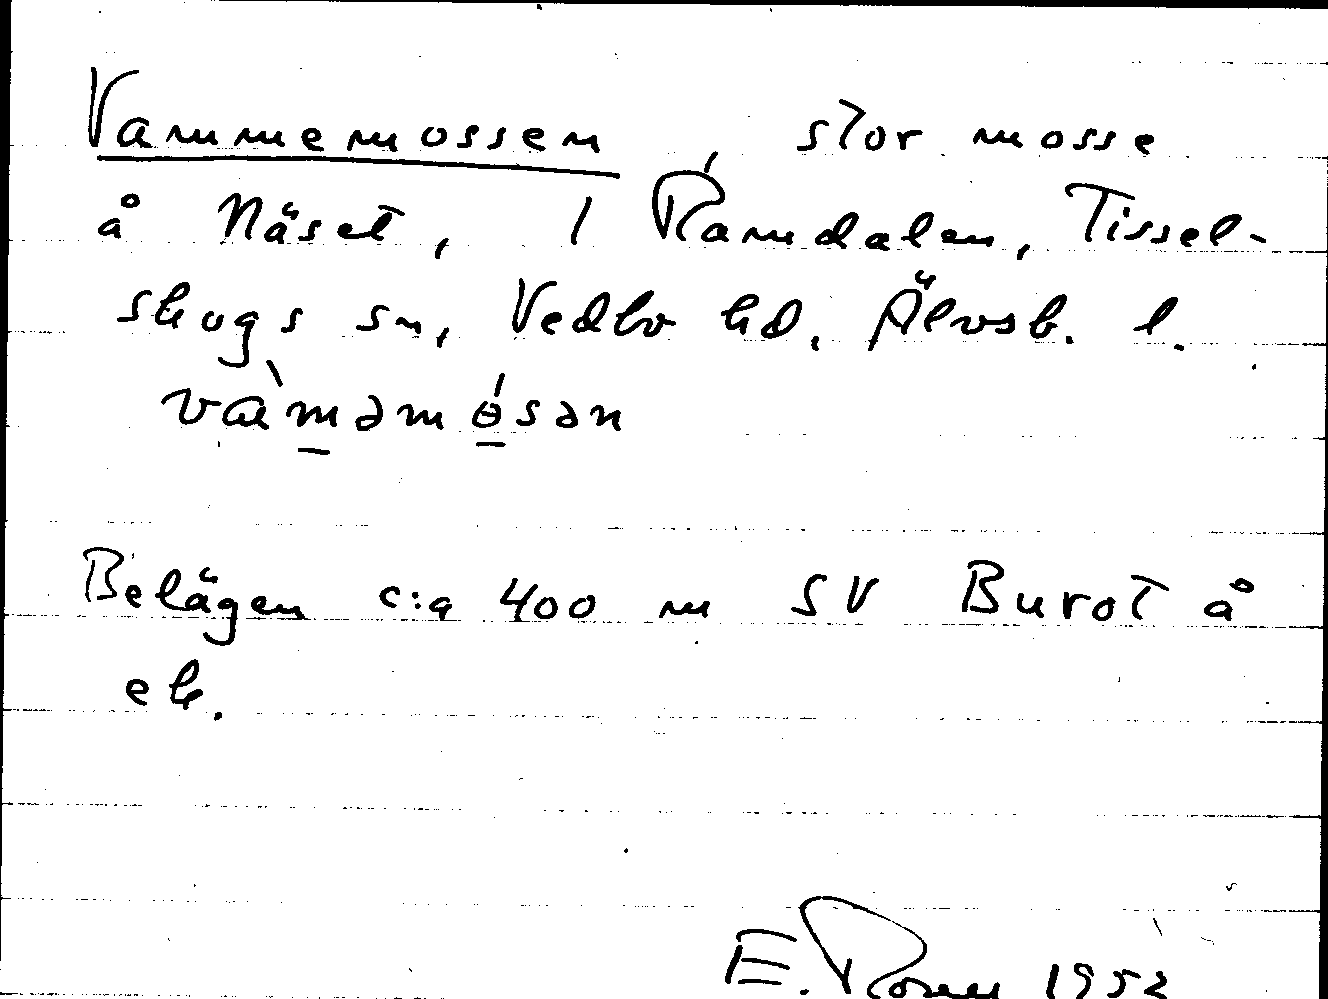 Vammemossen, stor mosse
å Näset, 1 Ramdalen, Tissel-
skogs sn, Vedbo hd, Älvsb. l.
vàmǝmɵ́sǝn
Belägen c:a 400 m SV Burot å
ek.
E. 1952